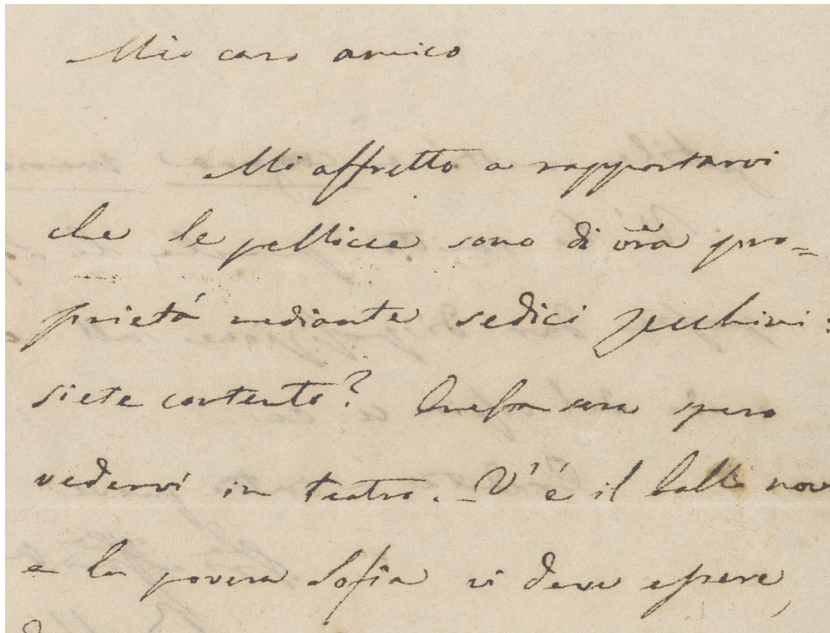 Mio caro amico
Mi affretto a rapportarvi
che le pellicce sono di vr̃a pro=
prietá mediante sedici zecchini:
siete contento? Questa sera spero
vedervi in teatro. – V'é il ballo nov
e la povera Sofia vi deve essere,